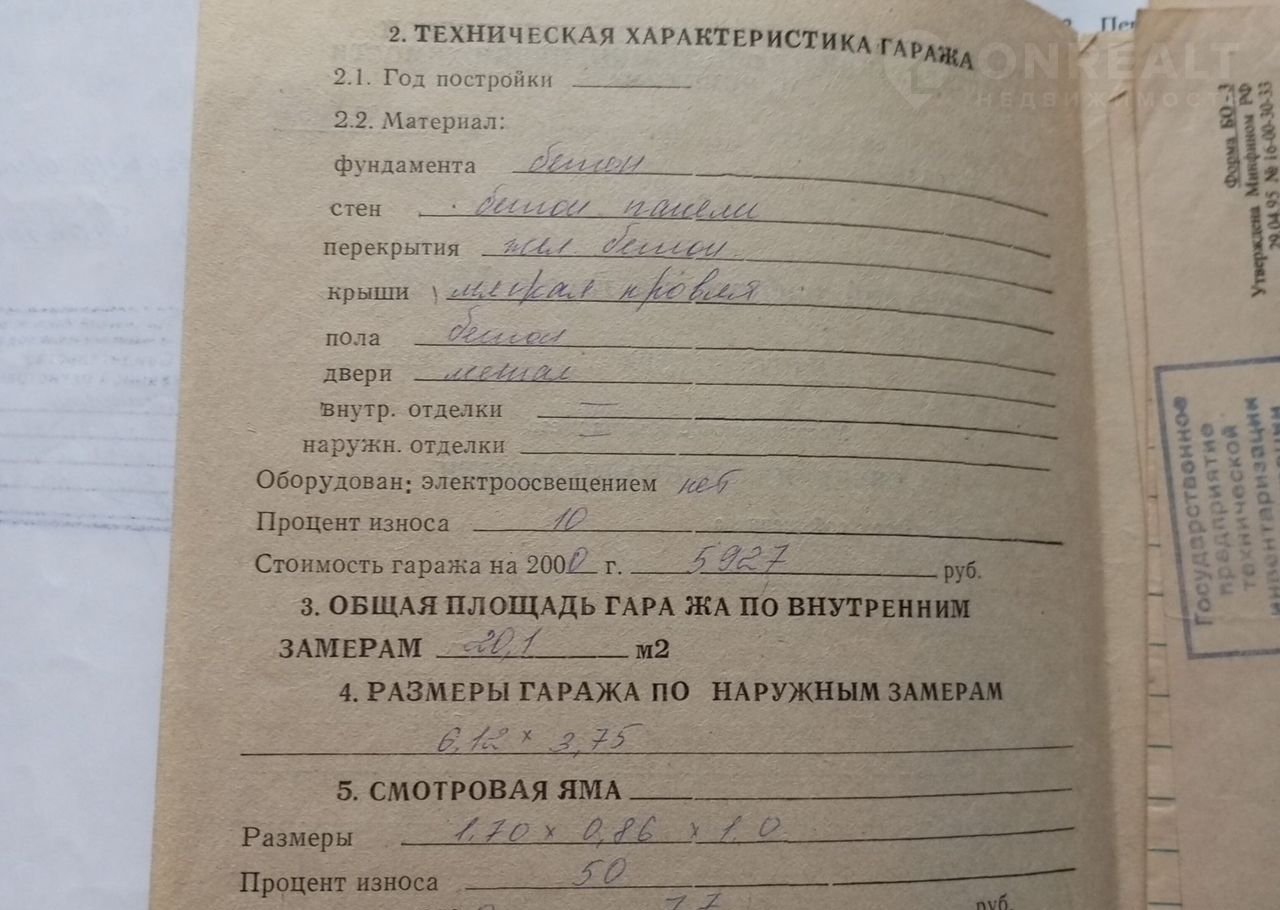 2. ТЕХНИЧЕСКАЯ ХАРАКТЕРИСТИКА ГАРАЖА
2.1. Год постройки
2.2. Материал:
фундамента бетон
стен бетон панели
перекрытия жел бетон
крыши мягкая кровля
пола бетон
двери метал
внутр. отделки —
наружн. отделки —
Оборудован: электроосвещением нет
Процент износа 10
Стоимость гаража на 2000 г. 5927 руб.
3. ОБЩАЯ ПЛОЩАДЬ ГАРА ЖА ПО ВНУТРЕННИМ
ЗАМЕРАМ 20,1 м2
4. РАЗМЕРЫ ГАРАЖА ПО НАРУЖНЫМ ЗАМЕРАМ
6,12 × 3,75
5. СМОТРОВАЯ ЯМА
Размеры 1,70 × 0,86 × 1,0
Процент износа 50
руб.
ONREALT
НЕДВИЖИМОСТЬ
Форма БО - 3
Утверждена Минфином РФ
29.04.95 № 16-00-30-33
Государственное
предприятие
технической
инвентаризации